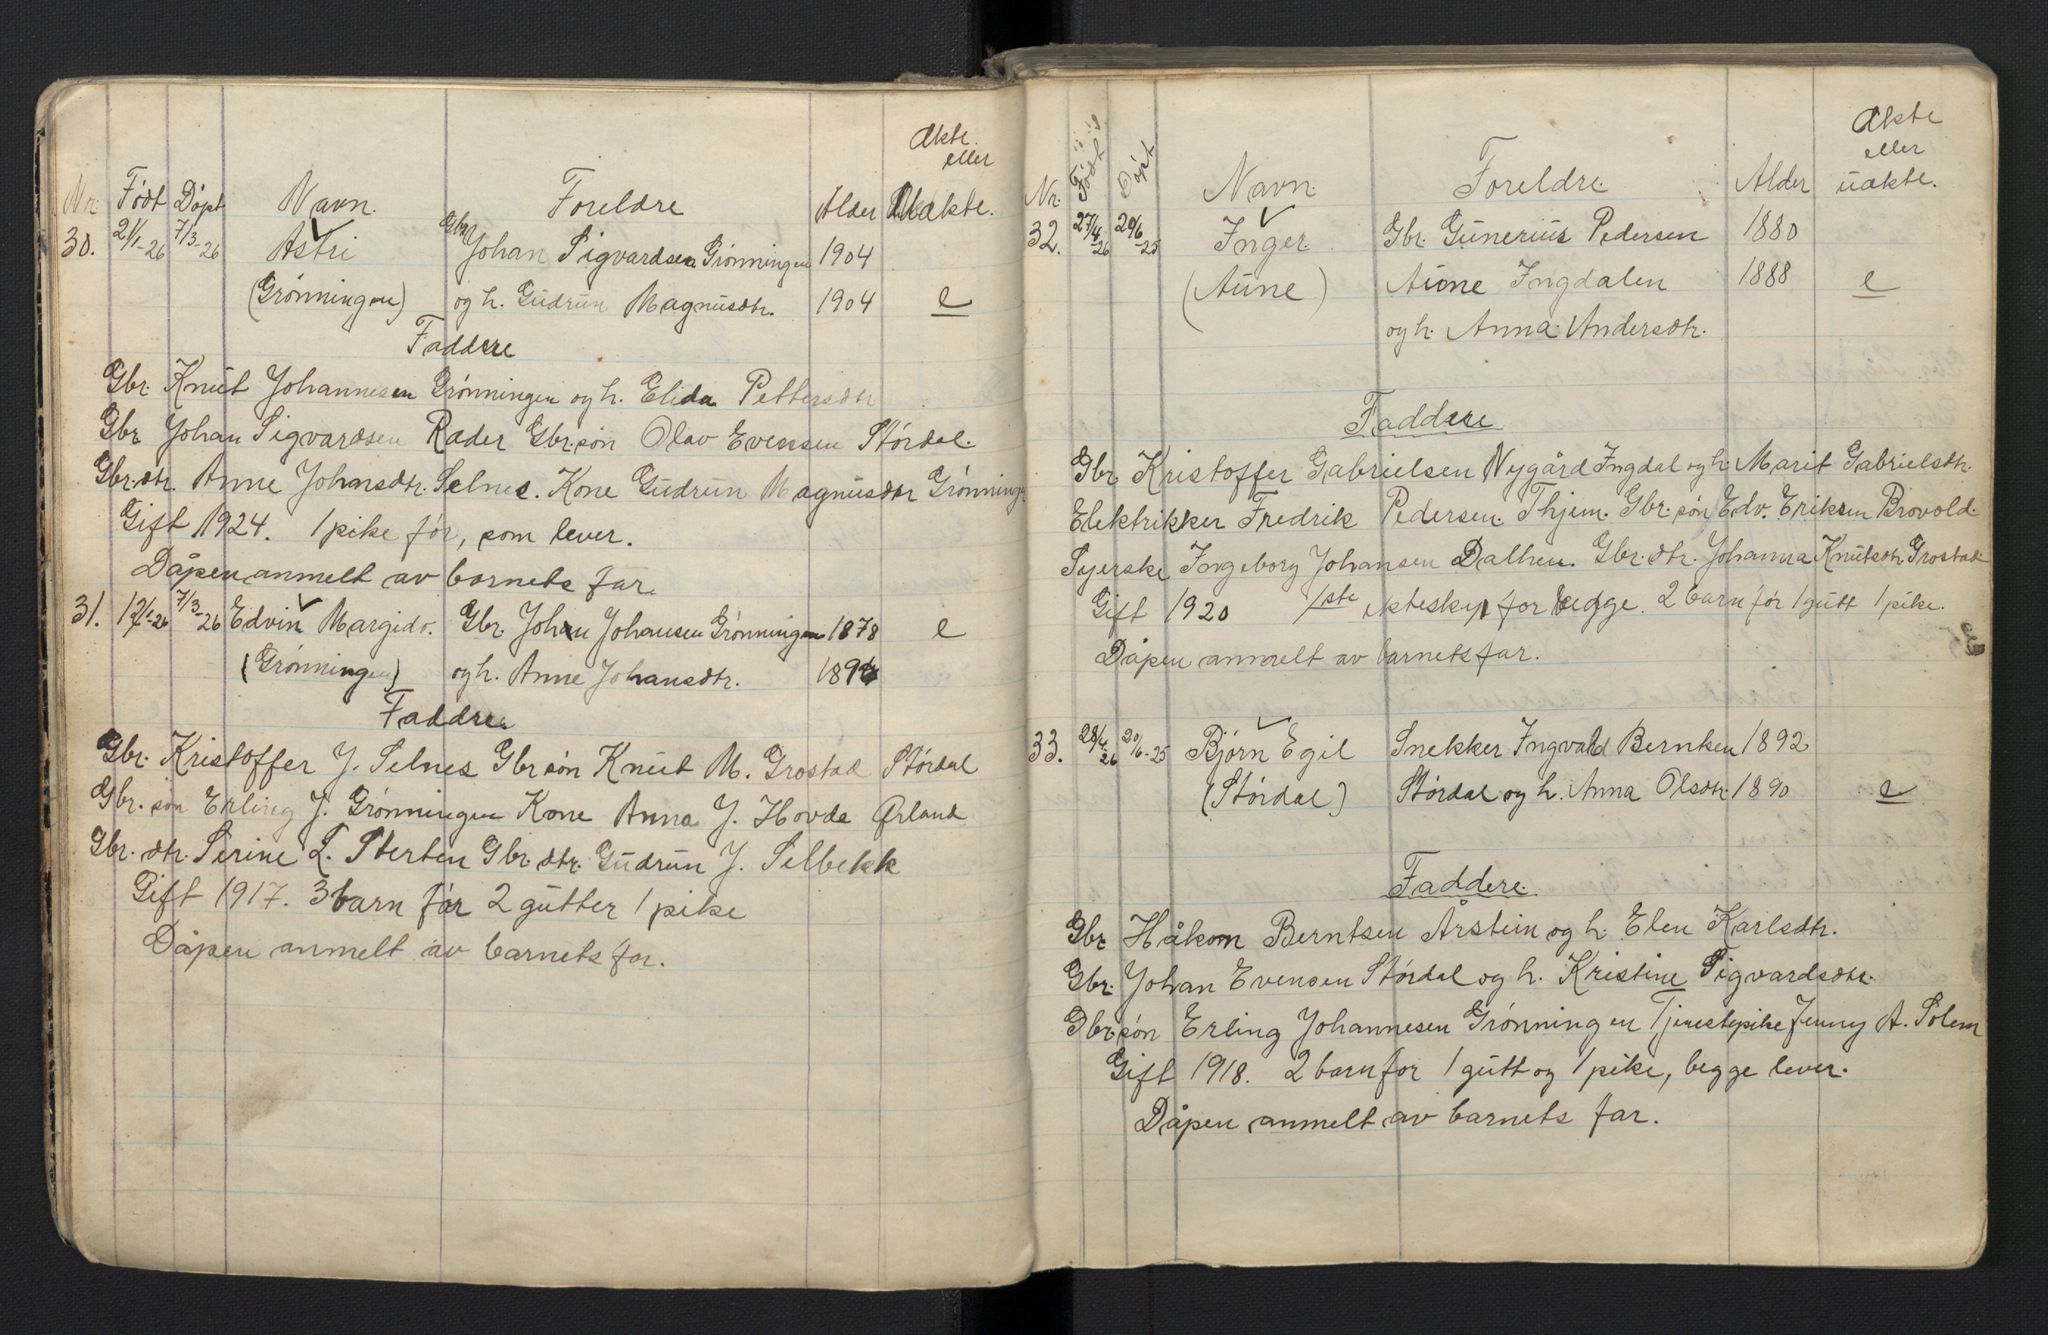 Ækte
eller
Nr. Født Døpt Navn. Foreldre Alder Uækte.
30. 21/1-26 7/3-26 Astri Gbr. Johan Sigvardsen Grønningen 1904
(Grønningen) og h. Gudrun Magnusdtr. 1904 e
Faddere
Gbr. Knut Johannesen Grønningen og h. Elida Pettersdtr
Gbr Johan Sigvardsen Ræder Gbr.søn Olav Evensen Størdal.
Gbr.dtr. Anne Johansdtr. Selnes. Kone Gudrun Magnusdtr Grønningen
Gift 1924. 1 pike før, som lever.
Dåpen anmelt av barnets far.
31. 7/3-26 Edvin Margido. Gbr. Johan Johansen Grønningen 1878 e
(Grønningen) og h. Anne Johansdtr.
Faddere
Gbr. Kristoffer J. Selnes Gbr søn Knut M. Grostad Størdal
Gbr. søn Erling J. Grønningen Kone Anna J. Hovde Ørland
Gbr. dtr. Serine L. Sterten Gbr. dtr. Gudrun J. Selbekk
Gift 1917. 3 barn før 2 gutter 1 pike
Dåpen anmelt av barnets far.
Ækte
eller
Nr. Født Døpt Navn. Foreldre Alder uækte.
32. 27/4-26 20/6-25 Inger Gbr. Gunerius Pedersen 1880
(Aune) Aune Ingdalen 1888 e
og h. Anna Andersdtr.
Faddere
Gbr Kristoffer Gabrielsen Nygård Ingdal og h. Marit Gabrielsdtr.
Elektrikker Fredrik Pedersen Thjem. Gbr. søn Edv. Eriksen Brovold.
Syerske Ingeborg Johansen Dalhen. Gbr. dtr. Johanna Knutsdtr. Grostad
Gift 1920 1ste ekteskap for begge. 2 barn før 1 gutt 1 pike.
Dåpen anmelt av barnets far.
33. 28/4-26 20/6-25 Bjørn Egil Snekker Ingvald Berntsen 1892
(Størdal) Størdal og h. Anna Olsdtr. 1890 e
Faddere.
Gbr Håkon Berntsen Årstein og h. Elen Karlsdtr.
Gbr. Johan Evensen Størdal og h. Kristine Sigvardsdtr.
Gbr.søn Erling Johannesen Grønningen Tjenestepike Jenny A. Solem
Gift 1918. 2 barn før 1 gutt og 1 pike, begge lever.
Dåpen anmelt av barnets far.